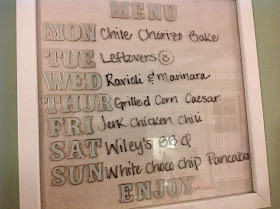 MENU
MON Chile Chorizo Bake
TUE Leftovers ☺
WED Ravioli & Marinara
THUR Grilled Corn Caesar
FRI Jerk Chicken Chili
SAT Wiley's BBQ
SUN White Choco Chip Pancakes
ENJOY